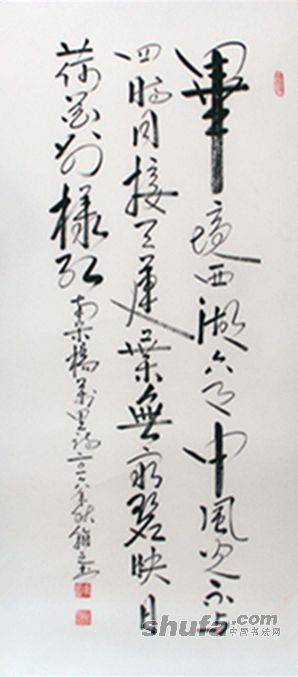 畢境西湖六月中風光不与
四時同接天蓮葉無窮碧映日
荷花别樣红 南宋楊萬里诗二〇一八年秋
shufa.com
中国书法网